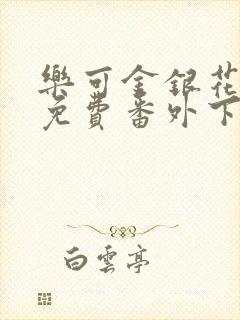 樂可金銀花
免費番外下
白雲亭